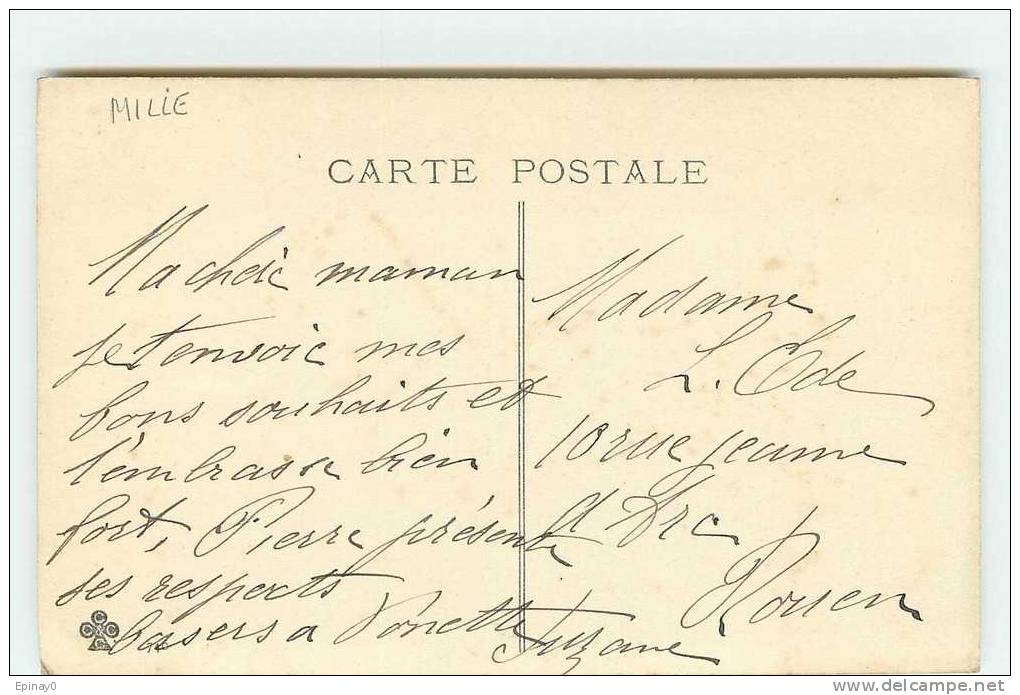 MILIE
CARTE POSTALE
Ma chère maman
je t'envoie mes
bons souhaits et
t'embrasse bien
fort, Pierre présente
ses respects
basers a Vonette
Suzane
Madame
L. Ede
10 rue jeanne
d Arc
Rouen
Epinay0
www.delcampe.net